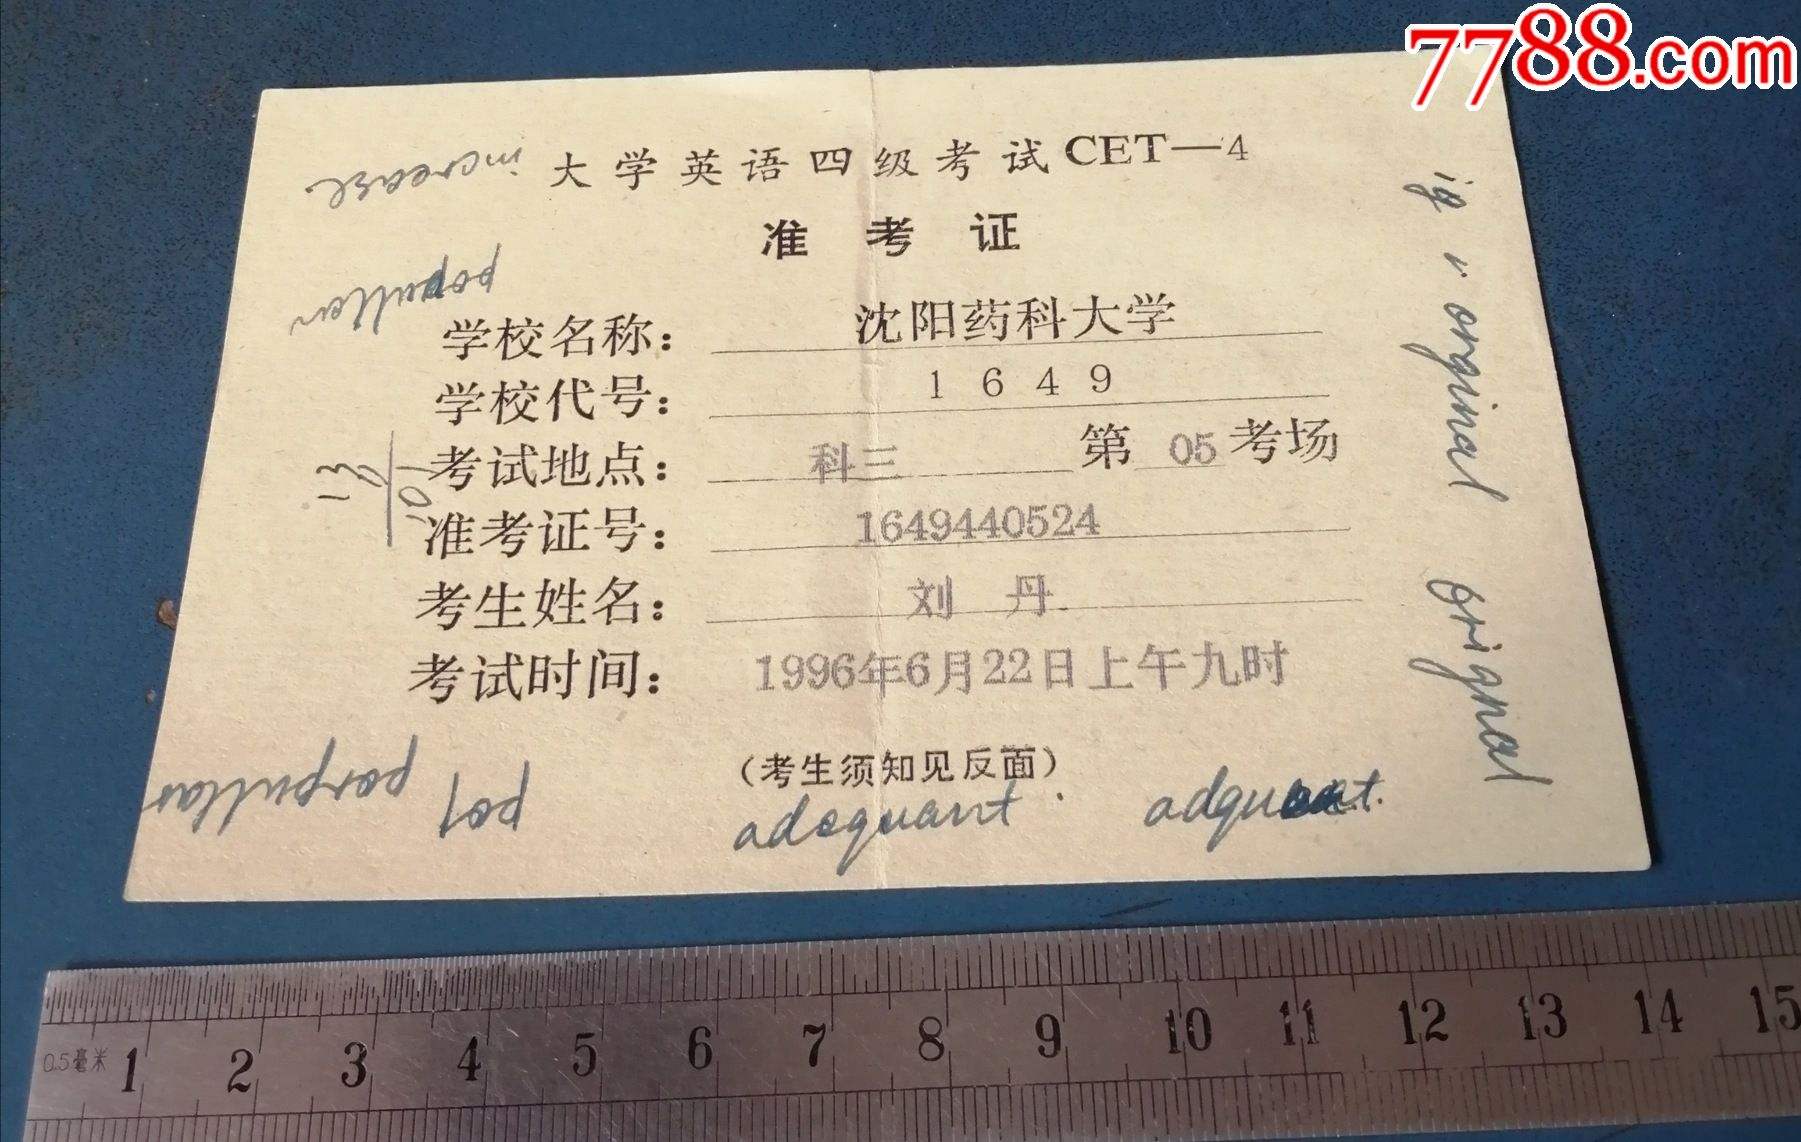 7788.com
大学英语四级考试CET—4
准考证
学校名称： 沈阳药科大学
学校代号： 1649
考试地点： 科三 第 05 考场
准考证号： 1649440524
考生姓名： 刘 丹
考试时间： 1996年6月22日上午九时
（考生须知见反面）
increase
popullar
porpullar
pol
adequant
adquant.
ig r orginal
orignal
0.5毫米 1 2 3 4 5 6 7 8 9 10 11 12 13 14 15